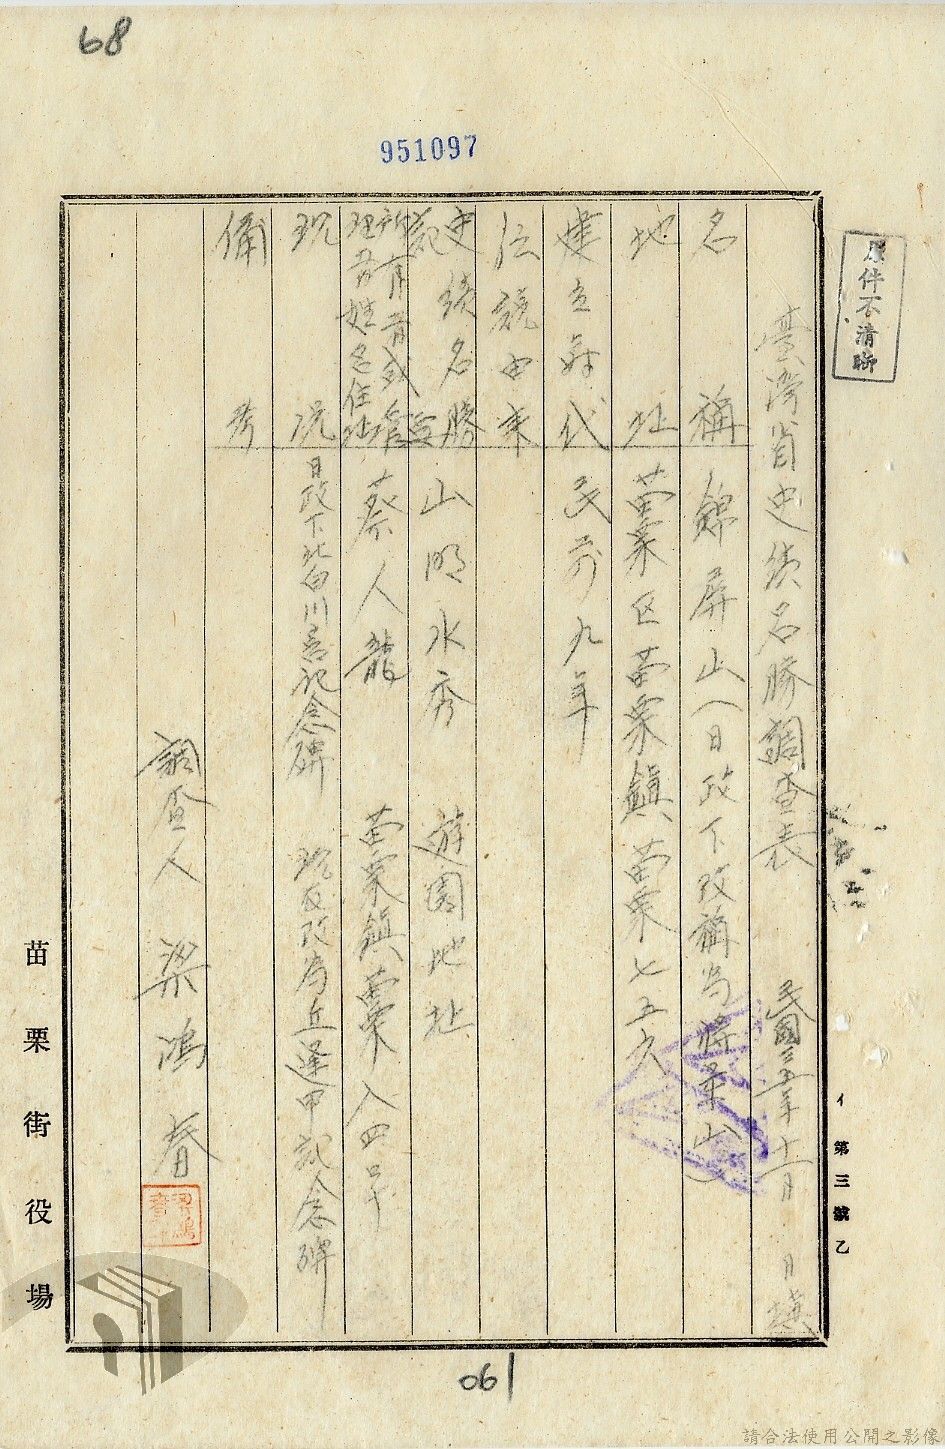 68
951097
原件不清晰
臺灣省史蹟名勝調查表 民國三五年十一月 日 填
名稱 錦屏山(日政下改稱為將軍山)
地址 苗栗区苗栗鎮苗栗七五六
建立年代 民前九年
傳說由來
史蹟名勝 山明水秀 遊園地址
所有者或管理者姓名住址 蔡人龍 苗栗鎮苗栗八四号
現況 日政下北白川宮記念碑 現在改為丘逢甲記念碑
備考
調查人 梁鴻春
梁鴻春章
イ 第三號乙
苗栗街役場
061
請合法使用公開之影像